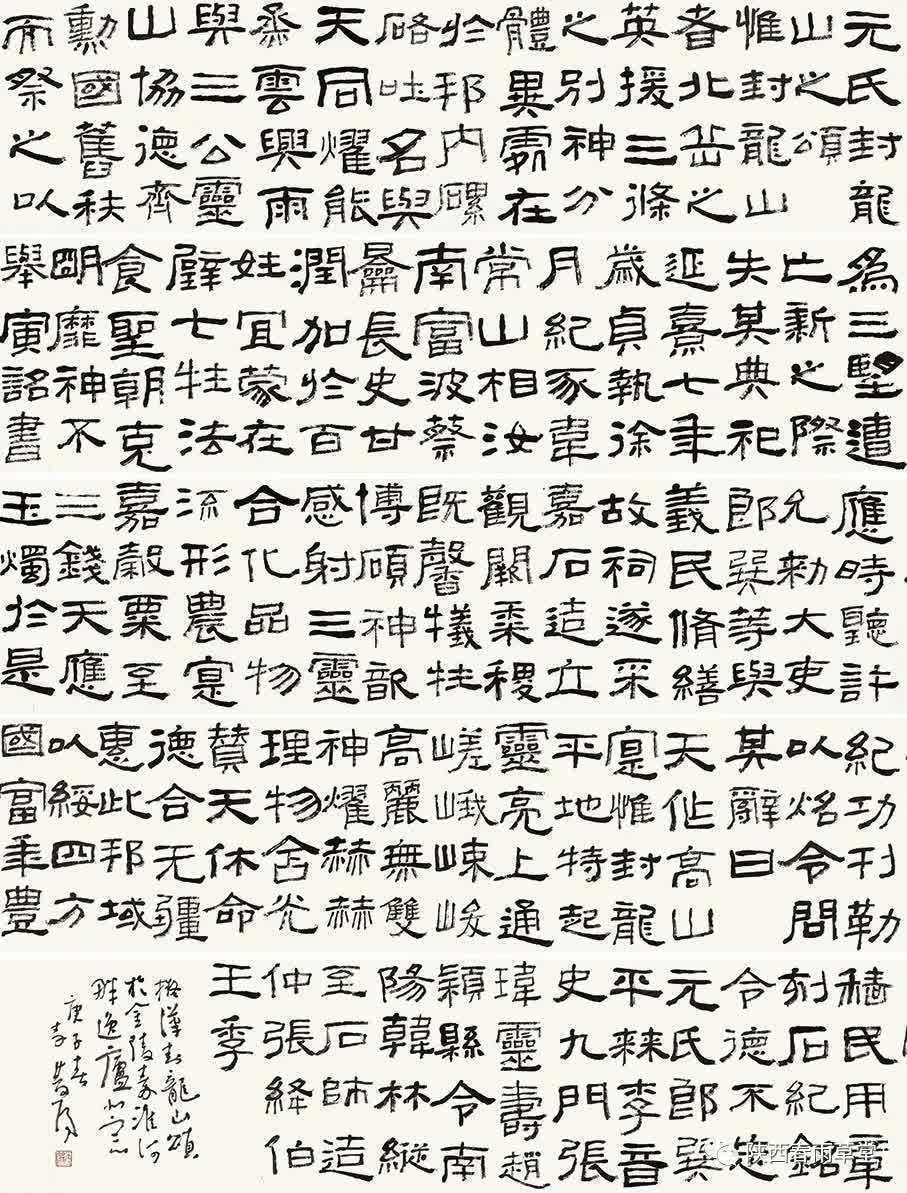 元氏封龍
山之頌
惟封龍山
者北岳之
英援三條
之別神分
體異處在
於邦内磥
硌吐名與
天同燿能
烝雲興雨
與三公靈
山協德齊
勳國舊秩
而祭之以
為三朢遭
亡新之際
失其典祀
延熹七年
歲貞執徐
月紀豕韋
常山相汝
南富波蔡
長史甘
潤加於百
姓冝蒙在
璧七牲法
食聖朝克
明靡神不
舉寅詔書
應時聽許
允勑大吏
郎巽等與
義民脩繕
故祠遂采
嘉石造立
觀闕黍稷
既馨犧牲
博碩神歆
感射三靈
合化品物
流形農寔
嘉穀粟至
三錢天應
玉燭於是
紀功刊勒
以炤令問
其辭曰
天作高山
寔惟封龍
平地特起
靈亮上通
嵯峨崍峻
高麗無雙
神燿赫赫
理物含光
贊天休命
德合无疆
惠此邦域
以綏四方
國富年豊
穡民用章
刻石紀銘
令德不忘
元氏郎巽
平棘李音
史九門張
瑋靈壽趙
穎縣令南
陽韓林縱
至石師造
仲張絳伯
王季
漢封龍山頌
於金陵秦淮河
畔逸廬
庚子春
陝西春雨草堂